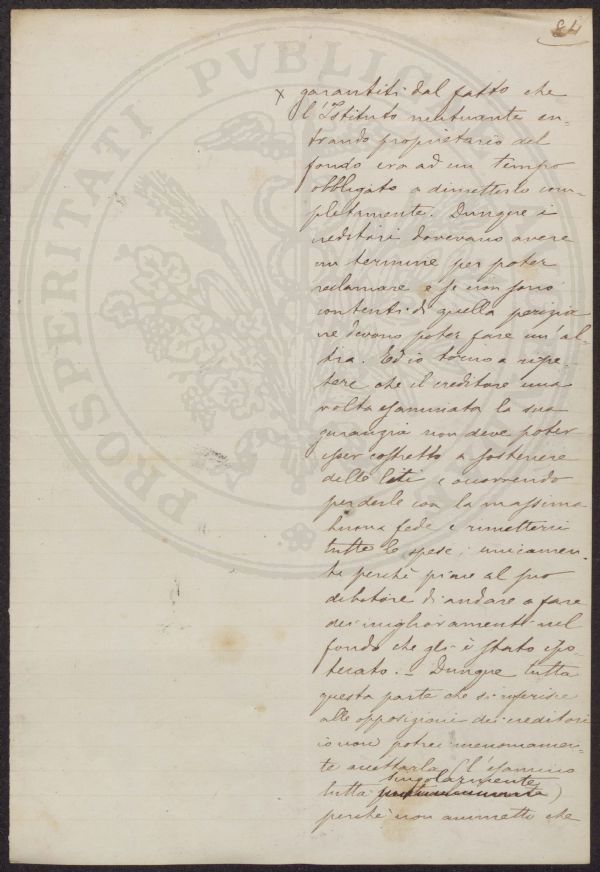 84
x garantiti dal fatto che
l'Istituto mutuante en-
trando proprietario del
fondo era ad un tempo
obbligato a dimetterlo com-
pletamente. Dunque i
creditori dovevano avere
un termine per poter
reclamare e se non sono
contenti di quella perizia
ne devono poter fare un'al-
tra. Ed io torno a ripe-
tere che il creditore una
volta esaminata la sua
garanzia non deve poter
esser costretto a sostenere
delle liti e occorrendo
perderle con la massima
buona fede e rimetterci
tutte le spese, unicamen-
te perchè piace al suo
debitore di andare a fare
dei miglioramenti nel
fondo che gli è stato ipo-
tecato. – Dunque tutta
questa parte che si riferisce
alle opposizioni dei creditori
io non potrei menomamen-
te accettarla (l'esamino
singolarmente
tutta )
perchè non ammetto che
PROSPERITATI PVBLICAE